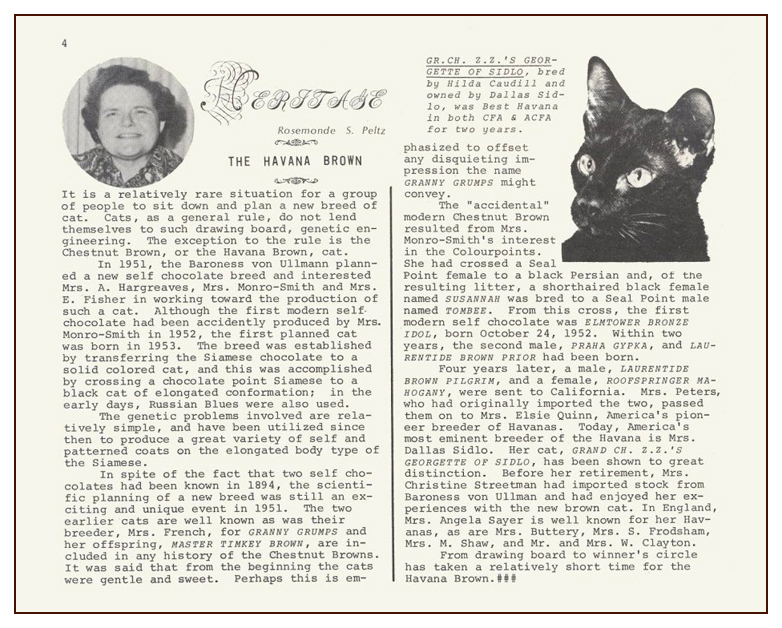 4
HERITAGE
Rosemonde S. Peltz
THE HAVANA BROWN
It is a relatively rare situation for a group
of people to sit down and plan a new breed of
cat. Cats, as a general rule, do not lend
themselves to such drawing board, genetic en-
gineering. The exception to the rule is the
Chestnut Brown, or the Havana Brown, cat.
In 1951, the Baroness von Ullmann plann-
ed a new self chocolate breed and interested
Mrs. A. Hargreaves, Mrs. Monro-Smith and Mrs.
E. Fisher in working toward the production of
such a cat. Although the first modern self-
chocolate had been accidently produced by Mrs.
Monro-Smith in 1952, the first planned cat
was born in 1953. The breed was established
by transferring the Siamese chocolate to a
solid colored cat, and this was accomplished
by crossing a chocolate point Siamese to a
black cat of elongated conformation; in the
early days, Russian Blues were also used.
The genetic problems involved are rela-
tively simple, and have been utilized since
then to produce a great variety of self and
patterned coats on the elongated body type of
the Siamese.
In spite of the fact that two self cho-
colates had been known in 1894, the scienti-
fic planning of a new breed was still an ex-
citing and unique event in 1951. The two
earlier cats are well known as was their
breeder, Mrs. French, for GRANNY GRUMPS and
her offspring, MASTER TIMKEY BROWN, are in-
cluded in any history of the Chestnut Browns.
It was said that from the beginning the cats
were gentle and sweet. Perhaps this is em-
GR.CH. Z.Z.'S GEOR-
GETTE OF SIDLO, bred
by Hilda Caudill and
owned by Dallas Sid-
lo, was Best Havana
in both CFA & ACFA
for two years.
phasized to offset
any disquieting im-
pression the name
GRANNY GRUMPS might
convey.
The "accidental"
modern Chestnut Brown
resulted from Mrs.
Monro-Smith's interest
in the Colourpoints.
She had crossed a Seal
Point female to a black Persian and, of the
resulting litter, a shorthaired black female
named SUSANNAH was bred to a Seal Point male
named TOMBEE. From this cross, the first
modern self chocolate was ELMTOWER BRONZE
IDOL, born October 24, 1952. Within two
years, the second male, PRAHA GYPKA, and LAU-
RENTIDE BROWN PRIOR had been born.
Four years later, a male, LAURENTIDE
BROWN PILGRIM, and a female, ROOFSPRINGER MA-
HOGANY, were sent to California. Mrs. Peters,
who had originally imported the two, passed
them on to Mrs. Elsie Quinn, America's pion-
eer breeder of Havanas. Today, America's
most eminent breeder of the Havana is Mrs.
Dallas Sidlo. Her cat, GRAND CH. Z.Z.'S
GEORGETTE OF SIDLO, has been shown to great
distinction. Before her retirement, Mrs.
Christine Streetman had imported stock from
Baroness von Ullman and had enjoyed her ex-
periences with the new brown cat. In England,
Mrs. Angela Sayer is well known for her Hav-
anas, as are Mrs. Buttery, Mrs. S. Frodsham,
Mrs. M. Shaw, and Mr. and Mrs. W. Clayton.
From drawing board to winner's circle
has taken a relatively short time for the
Havana Brown.###